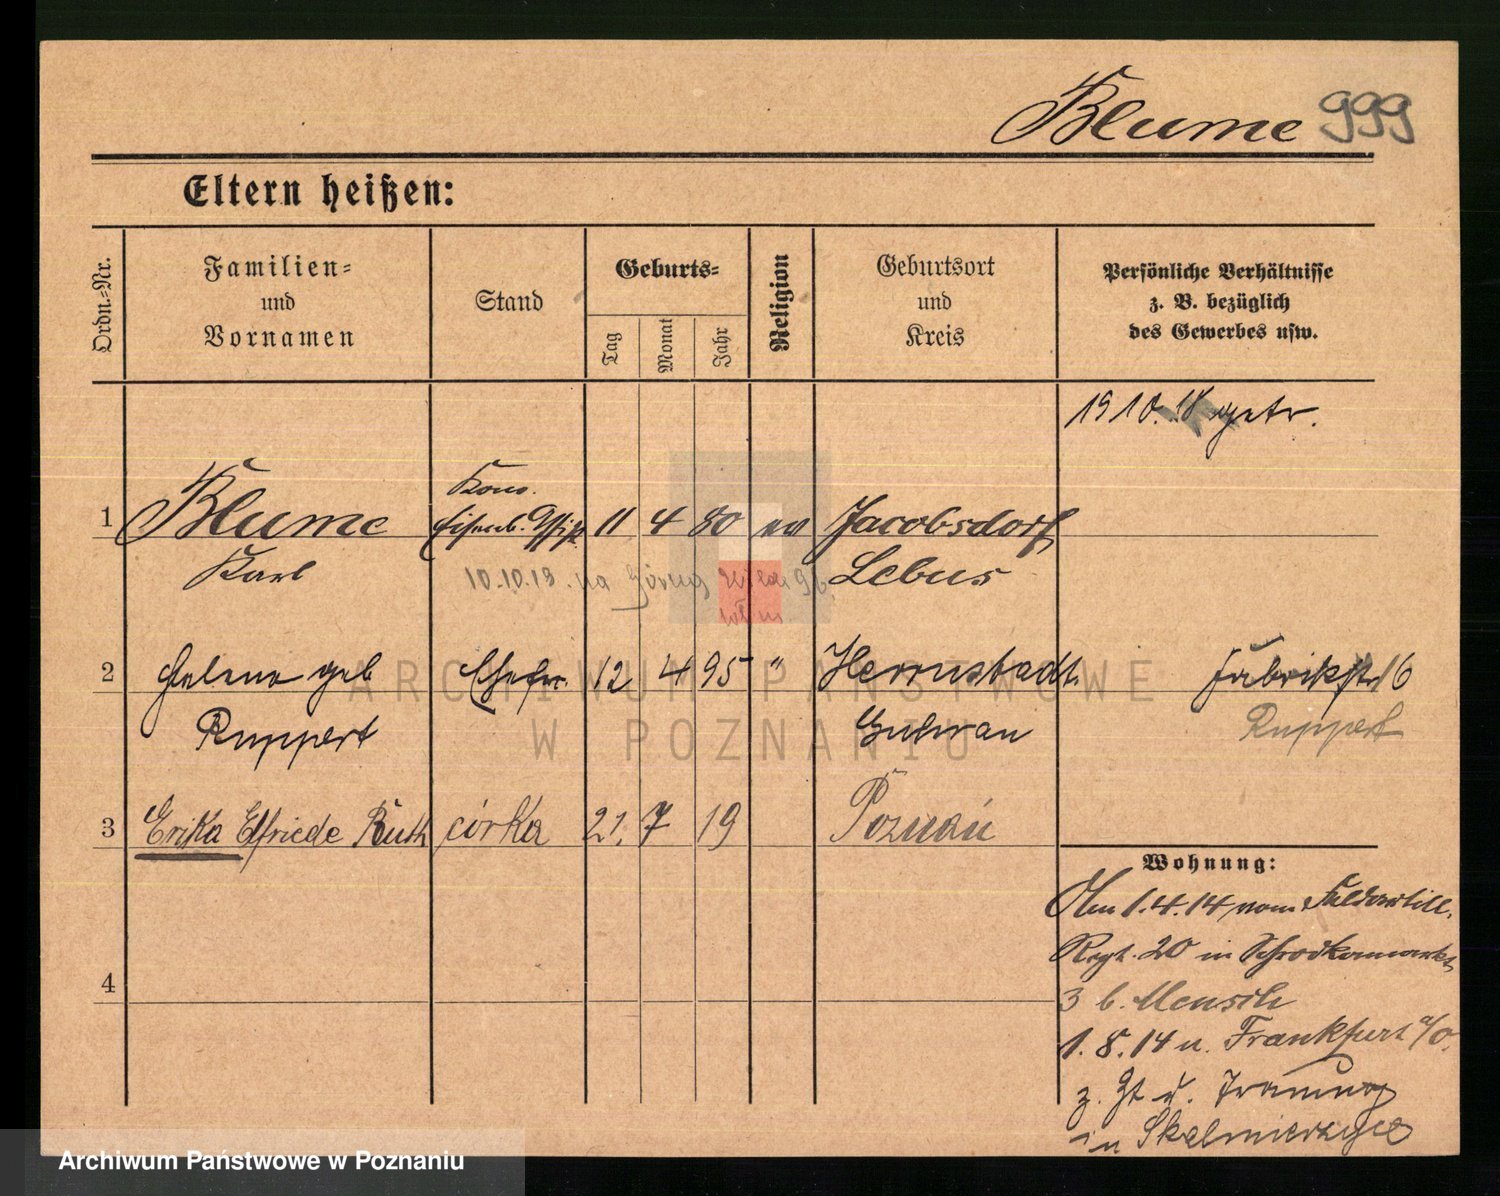 Blume 999
Eltern heißen:
Ordn.-Nr.
Familien-
und
Vornamen
Stand
Geburts-
Tag
Monat
Jahr
Religion
Geburtsort
und
Kreis
Persönliche Verhältnisse
z. B. bezüglich
des Gewerbes usw.
1910. 18 getr.
1 Blume 11 4 80 ev Jacobsdorf
Karl Lebus
10.10.18. na
2 Helene geb Ehefr. 12 4 95 " Herrnstadt Fabrikstr 16
Ruppert Guhrau Ruppert
3 Erika Elfriede Ruth córka 21. 7 19 Poznań
Wohnung:
Am 1.4.14 vom Feldartill.
Regt. 20 in Schrodkamarkt
3 b. Mensch
1.8.14 n. Frankfurt a/O.
z. Zt d. Trauung
in Skalmierzyce
4
ARCHIWUM PAŃSTWOWE
W POZNANIU
Archiwum Państwowe w Poznaniu